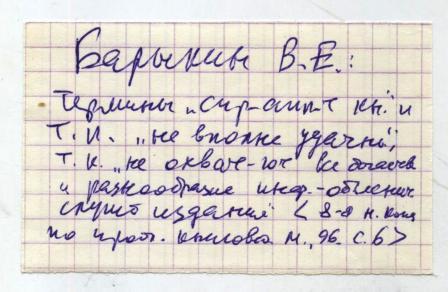 Барыкин В.Е.:
Термины „спр-аналит кн." и
т.п. „не вполне удачны",
т.к. „не охват-ют все богатство
и разнообразие инф.-
служб издания" < 8-я н. конф
по проб. книговед М., 96. с. 6>